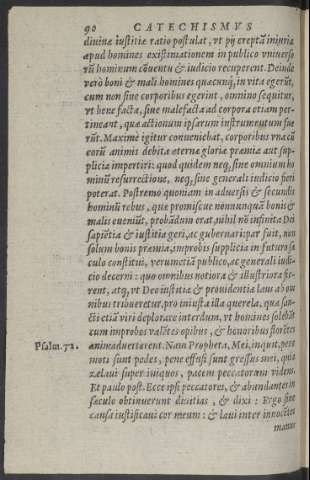 90 CATECHISMVS
diuinæ iustitiæ ratio postulat, vt pij ereptã iniuria
apud homines existimationem in publico vniuerso
rũ hominum cõuentu & iudicio recuperent. Deinde
verò boni & mali homines quæcunq; in vita egerũt,
cum non sine corporibus egerint, omnino sequitur,
vt bene facta, siue malefacta ad corpora etiam per-
tineant, quæ actionum ipsarum instrumentum fue
rũt. Maximè igitur conueniebat, corporibus vna cũ
eorũ animis debita æternæ gloriæ præmia aut sup-
plicia impertiri: quod quidem neq; sine omnium ho
minũ resurrectione, neq; sine generali iudicio fieri
poterat. Postremò quoniam in aduersis & secundis
hominũ rebus, quæ promiscuè nonnunquã bonis &
malis eueniũt, probãdum erat, nihil nõ infinita Dei
sapiẽtia & iustitia geri, ac gubernari: par fuit, non
solum bonis præmia, improbis supplicia in futuro sæ
culo constitui, verumetiã publico, ac generali iudi-
cio decerni: quo omnibus notiora & illustriora fie-
rent, atq; vt Deo iustitiæ & prouidentiæ laus ab om
nibus tribueretur, pro iniusta illa querela, qua san-
cti etiã viri deplorare interdum, vt homines solebãt
cum improbos valẽtes opibus, & honoribus florẽtes
Psalm.72. animaduerterent. Nam Propheta, Mei, inquit, pene
moti sunt pedes, pene effusi sunt gressus mei, quia
zelaui super iniquos, pacem peccatorum videns.
Et paulo post. Ecce ipsi peccatores, & abundantes in
sæculo obtinuerunt diuitias, & dixi: Ergo sine
causa iustificaui cor meum: & laui inter innocẽtes
manus